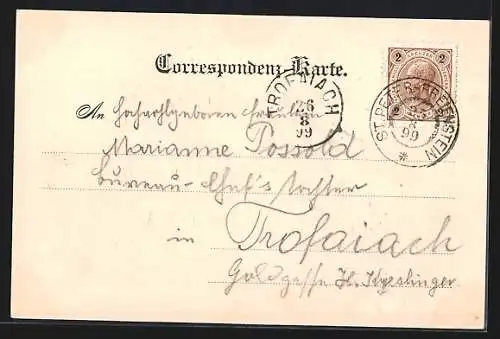 Correspondenz-Karte.
2 2
TROFAIACH
26
8
99
ST. PETER-FREIENSTEIN
99
An Hochwohlgeboren Fräulein
Marianne Possold
Bureau-Chef's Tochter
in
Trofaiach
Goldgasse H.